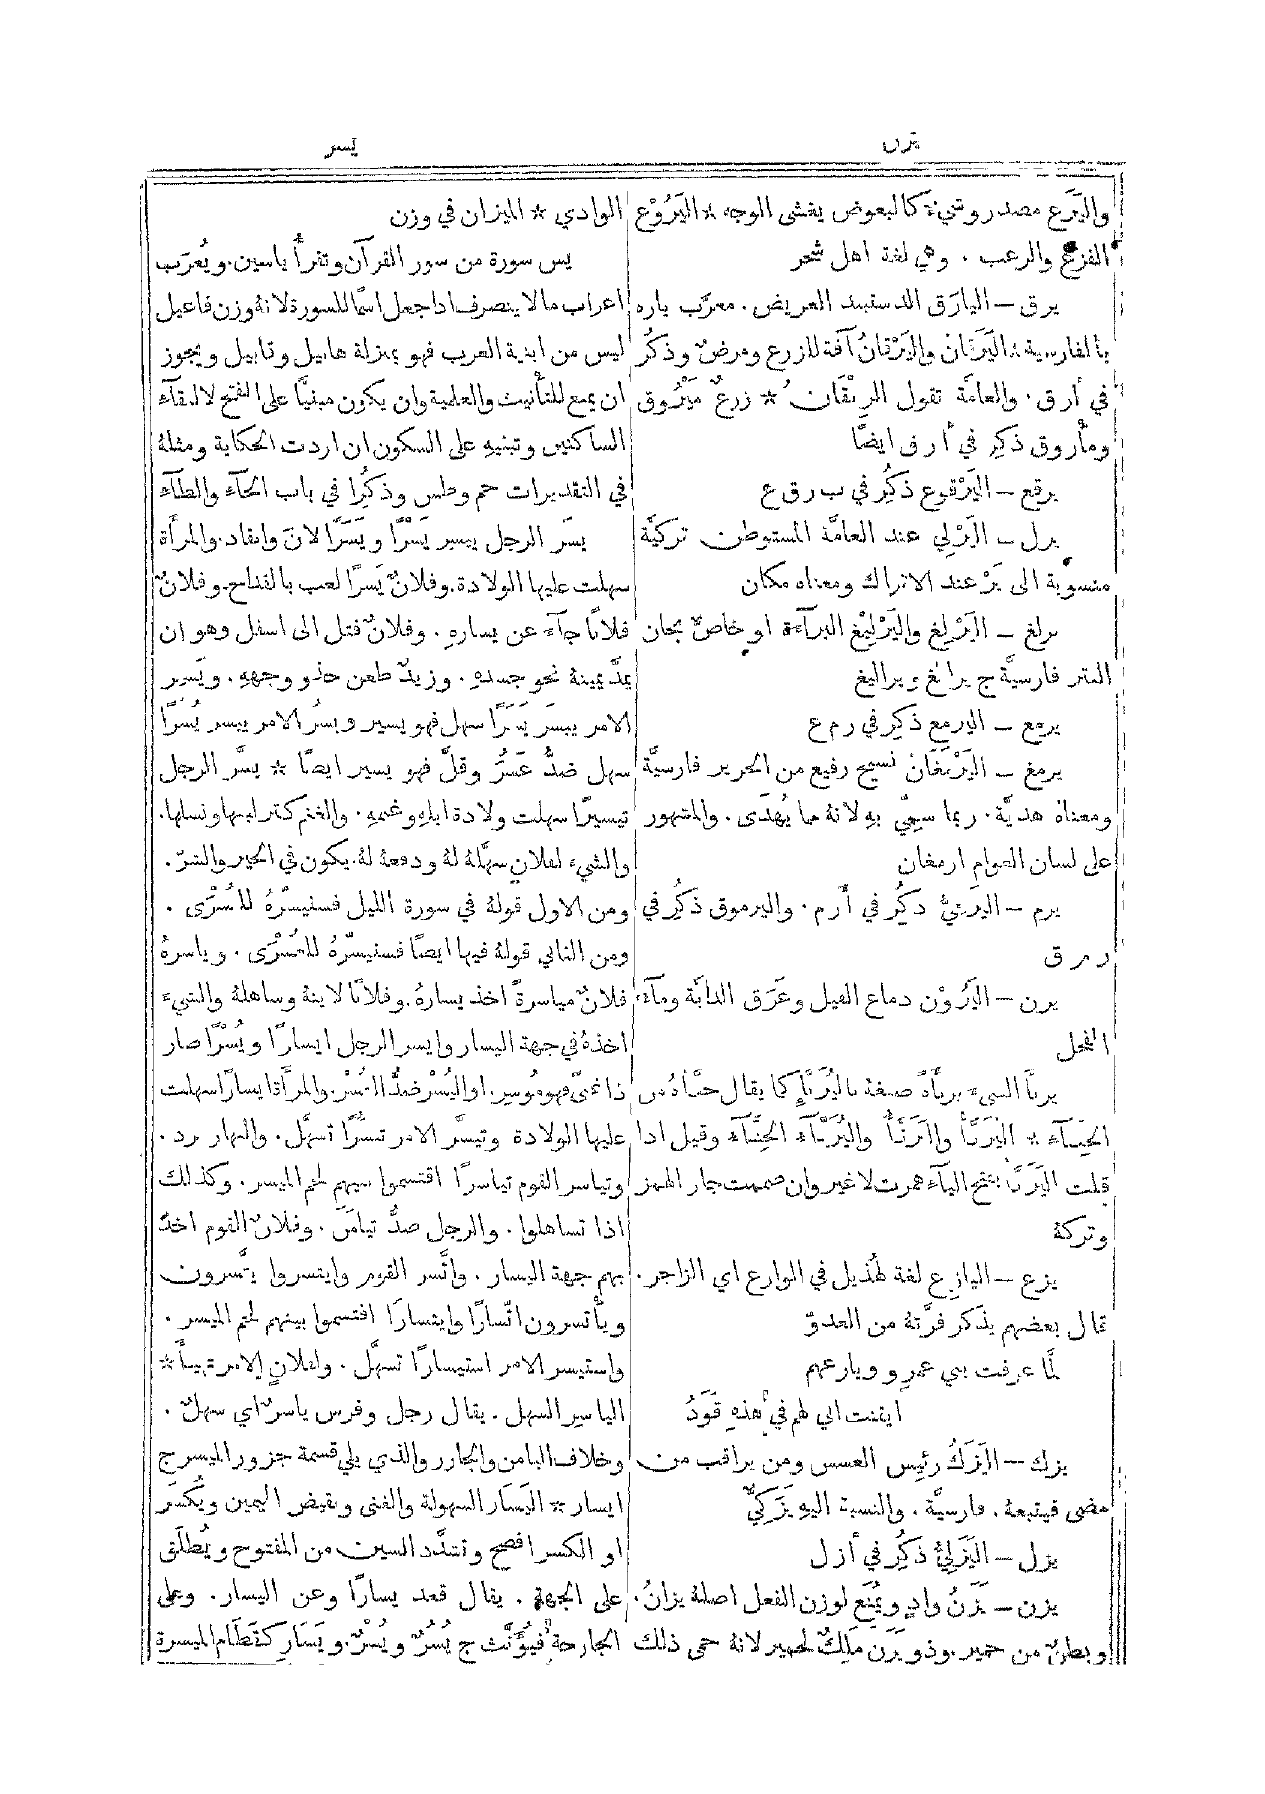 يزن
يسر
واليَرَع مصدر وشيءٌ كالبعوض يغشى الوجه * اليَرُوْع
الفزع والرعب . وهي لغة اهل شحر
يرق – اليارَق الدستبند العريض . معرَّب ياره
بالفارسية * اليَرَقان واليَرْقانُ آفة للزرع ومرضٌ وذُكر
في أرق . والعامَّة تقول الرِيْقان * زرعٌ مَيْرُوق
ومأروق ذُكِر في أرق ايضًا
يرقع – اليَرْقوع ذُكِر في ب رق ع
يرل – اليَرْلي عند العامَّة المستوطن تركيَّة
منسوبة الى يَرْ عند الاتراك ومعناه مكان
يرلغ – اليَرْلِغ واليَرْلِيْغ البرآءة او خاصٌّ بخان
التتر فارسيَّة ج يرالغ ويراليغ
يرمع – اليرمع ذُكِر في رم ع
يرمغ – اليَرْمَغَان نسيج رفيع من الحرير فارسيَّة
ومعناهُ هديَّة . ربما سمِّي بهِ لانهُ مما يُهدَى . والمشهور
على لسان العوام ارمغان
يرم – اليرنيُّ ذُكِر في أرم . واليرموق ذُكِر في
ر م ق
يرن – اليَرُوْن دماغ الفيل وعَرَق الدابَّة ومآءُ
الفحل
يرنأ الشيءَ يرنأةً صبغهُ باليُرَنَّإِ كما يقال حنَّأهُ من
الحِنَّآءِ * اليَرَنَّأُ واليُرَنَّأُ واليُرَنَّآءُ الحِنَّآءُ وقيل اذا
قلت اليَرَنَّأ بفتح اليآء همزت لا غير وان ضممت جاز الهمز
وتركهُ
يزع – اليازع لغة لهُذَيل في الوازع اي الزاجر .
قال بعضهم يذكر فرَّتهُ من العدوّ
لمَّا عرفت بني عمرٍو ويازعهم
ايقنت اني لهم في هذهِ قَوَدُ
يزك – اليَزَكُ رئيس العسس ومن يراقب من
مضى فيتبعهُ . فارسيَّة . والنسبة اليهِ يَزَكيٌّ
يزل – اليَزَليُّ ذُكِر في أزل
يزن – يَزَنُ وادٍ ويُمنَع لوزن الفعل اصلهُ يزانُ .
وبطنٌ من حمير . وذو يَزَن مَلِكٌ لحمير لانهُ حمى ذلك
الوادي * الميزان في وزن
يس سورة من سور القرآن وتقرأُ ياسين . ويُعرَب
اعراب ما لا ينصرف اذا جعل اسمًا للسورة لانهُ وزن فاعيل
ليس من ابنية العرب فهو بمنزلة هابيل وقابيل ويجوز
ان يمنع للتأنيث والعلمية وان يكون مبنيًّا على الفتح لالتقآء
الساكنين وتبنيهِ على السكون ان اردت الحكاية ومثلهُ
في التقديرات حم وطس وذُكِرا في باب الحآء والطآء
يسَر الرجل ييسِر يَسْرًا ويَسَرًا لانَ وانقاد . والمرأَة
سهلت عليها الولادة . وفلانٌ يَسرًا لعب بالقداح . وفلانٌ
فلانًا جآءَ عن يسارهِ . وفلانٌ فتل الى اسفل وهو ان
يمدَّ يمينهُ نحو جسدهِ . وزيدٌ طعن حذو وجههِ . ويَسِر
الامر ييسَر يَسَرًا سهل فهو يسير ويسُر الامر ييسر يُسْرًا
سهل ضدُّ عَسُرَ وقلَّ فهو يسير ايضًا * يسَّر الرجل
تيسيرًا سهلت ولادة ابلهِ وغنمهِ . والغنم كثر لبنها ونسلها .
والشيء لفلانٍ سهَّلهُ لهُ ودفعهُ لهُ . يكون في الخير والشرّ .
ومن الاول قولهُ في سورة الليل فسنيسّرهُ لليُسْرَى .
ومن الثاني قولهُ فيها ايضًا فسنيسّرهُ للعُسْرَى . وياسرهُ
فلانٌ مياسرةً اخذ يسارهُ . وفلانًا لاينهُ وساهلهُ والشيءَ
اخذهُ في جهة اليسار وايسر الرجل ايسارًا ويُسْرًا صار
ذا غنًى فهو مُوسِر . او اليُسْر ضدُّ العُسْر . والمرأَة ايسارًا سهلت
عليها الولادة وتيسَّر الامر تيسُّرًا تسهَّل . والنهار برد .
وتياسر القوم تياسرًا اقتسموا بينهم لحم الميسر . وكذلك
اذا تساهلوا . والرجل ضدُّ تيامَنَ . وفلانٌ القوم اخذ
بهم جهة اليسار . واتَّسر القوم وايتسروا يتَّسرون
ويأْتسرون اتّسارًا وايتسارًا اقتسموا بينهم لحم الميسر .
واستيسر الامر استيسارًا تسهَّل . ولفلانٍ الامر تهيأَ *
الياسِر السهل . يقال رجل وفرس ياسرٌ اي سهلٌ .
وخلاف اليامن والجازر والذي يلي قسمة جزور الميسر ج
ايسار * اليَسَار السهولة والغنى ونقيض اليمين ويُكسَر
او الكسر افصح وتشدَّد السين من المفتوح ويُطلَق
على الجهة . يقال قعد يسارًا وعن اليسار . وعلى
الجارحة فيؤَنَّث ج يُسُرٌ ويُسْرٌ . ويَسَارِ كقَطَامِ الميسرة